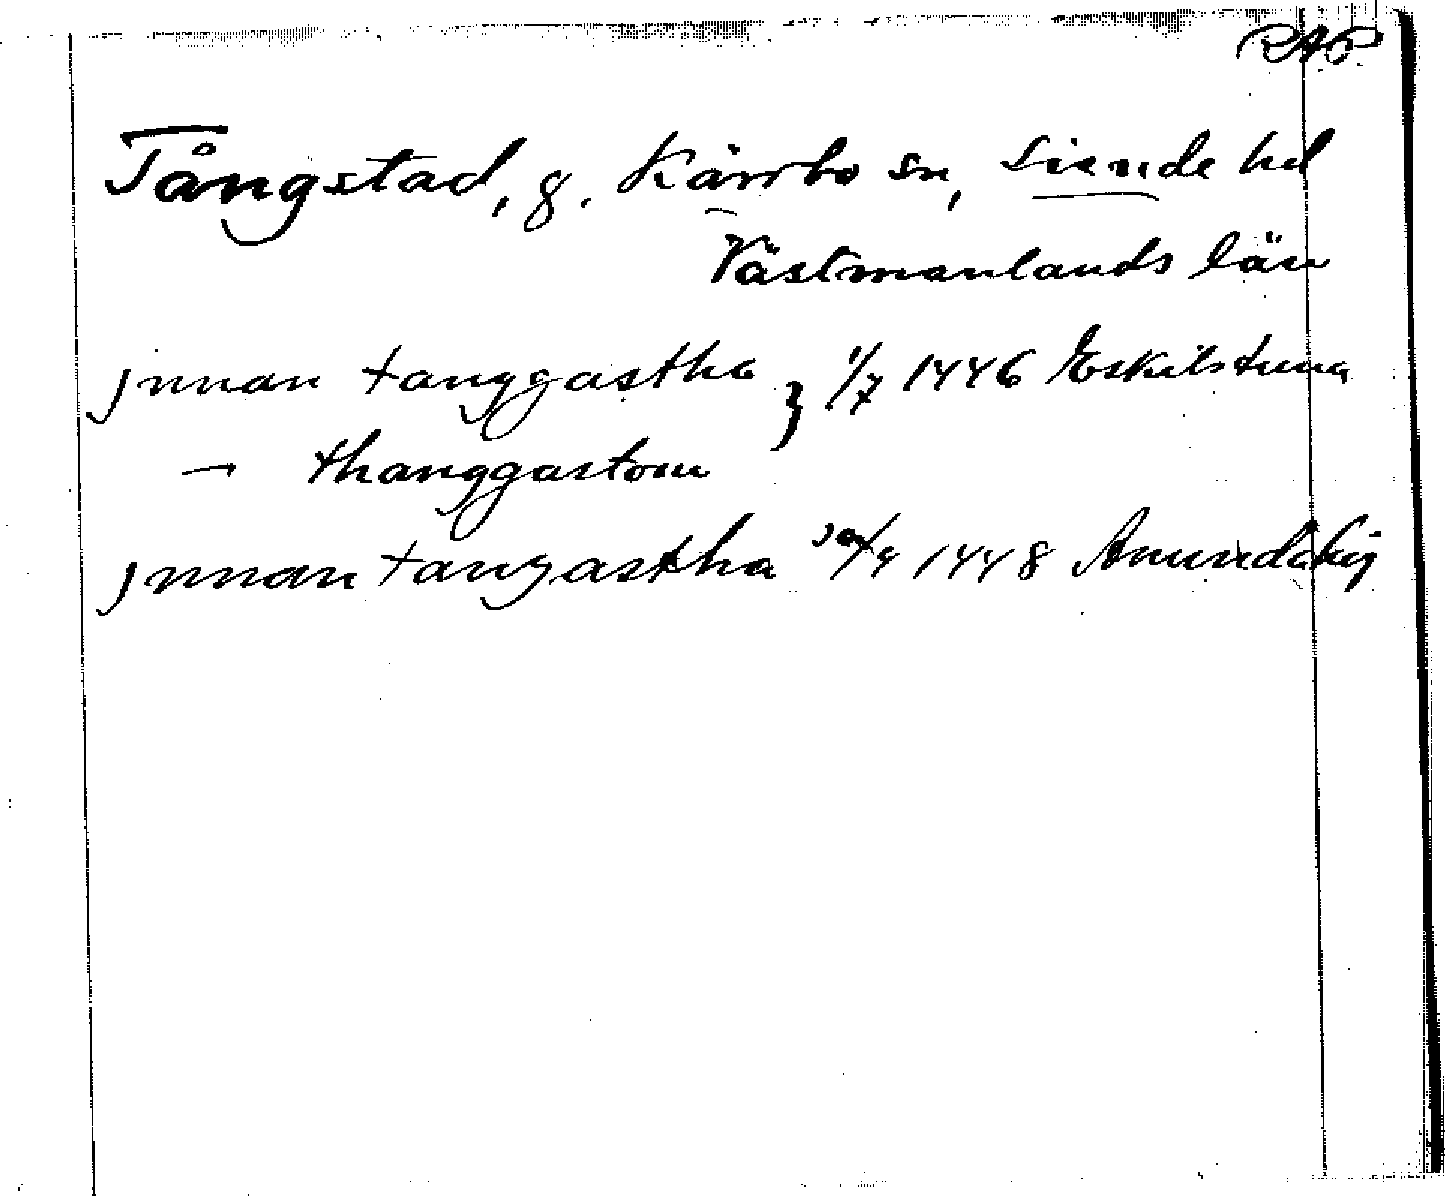 RAP
Tångstad, g. Kärrbo sn, Siende hd
Västmanlands län
jnnan tanggastha } 1/7 1446 Eskilstuna
— thanggastom
jnnan tangastha 30/4 1448